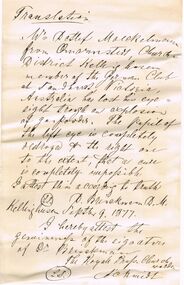 Translation
Mr Detlef
from Church
District Kelling
member of the German Club
at Victoria,
Australia has lost his eye-
sight through an explosion
of gunpowder. The pupil of
the left eye is completely
destroyed & the right one
to the extent, that a cure
is completely impossible.
I attest this according to truth
Kellinghusen Septb. 9, 1877.
I hereby attest the
genuineness of the signature
of Dr
the Royal Church